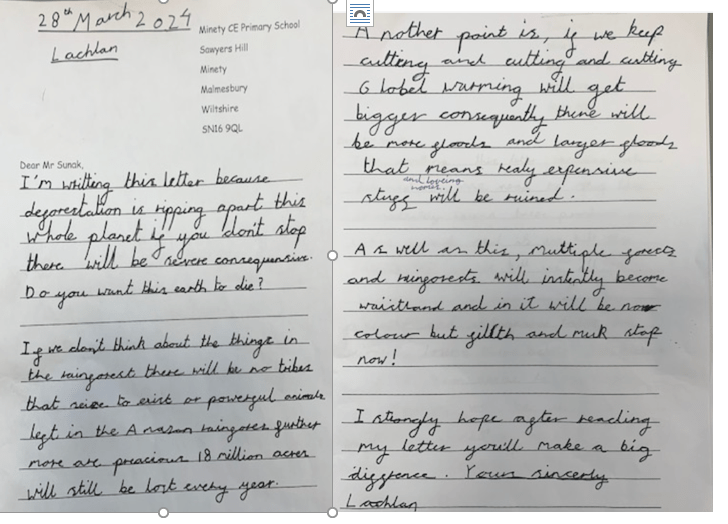 28th March 2024
Lachlan
Minety CE Primary School
Sawyers Hill
Minety
Malmesbury
Wiltshire
SN16 9QL
Dear Mr Sunak,
I'm writting this letter because
deforestation is ripping apart this
whole planet if you don't stop
there will be severe consequensive.
Do you want this earth to die?
If we don't think about the things in
the rainforest there will be no tribes
that seise to exist or powerful animals
left in the Amason rainfores further
more are preacious 18 million acres
will still be lost every year.
Another point is, if we keep
cutting and cutting and cutting
Global warming will get
bigger consequently there will
be more floods and larger floods
that means realy expensive
and loveing
homes
stuff will be ruined.
As well as this, multiple forests
and rainforests will instently become
waistland and in it will be now
colour but fillth and muk stop
now!
I strongly hope after reading
my letter you'll make a big
diffrence. Yours sincerly
Lachlan